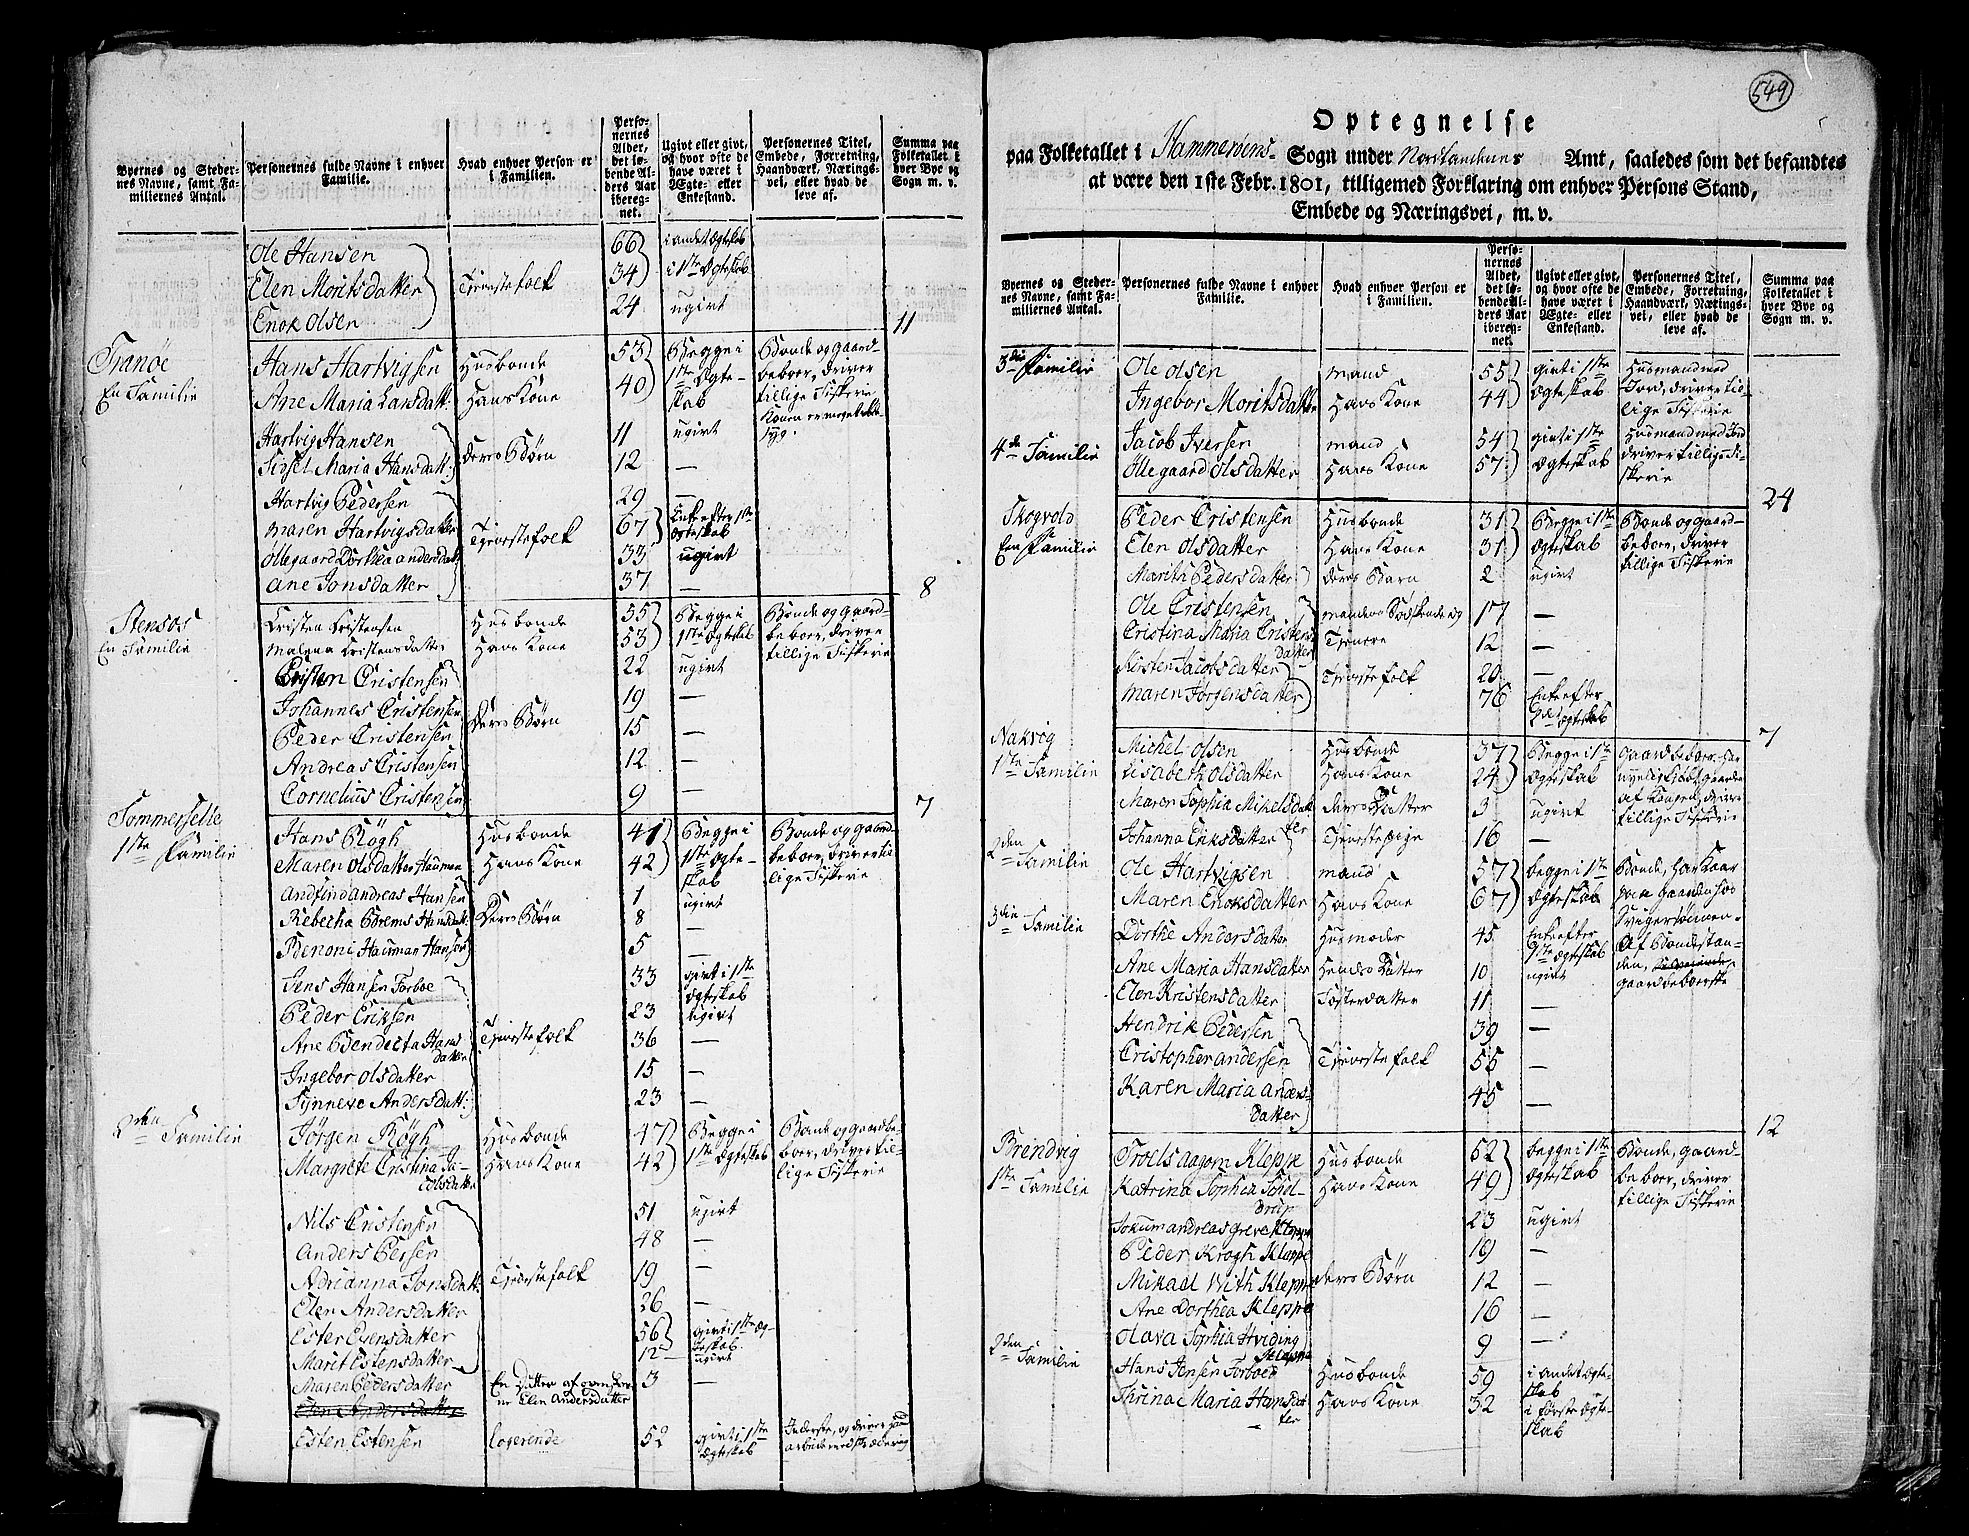 Byernes og Steder-
nes Navne, samt Fa-
miliernes Antal.
Personernes fulde Navne i enhver
Familie.
Hvad enhver Person er
i Familien.
Perso-
nernes
Alder,
det lø-
bende Al-
ders Aar
ibereg-
net.
Ugivt eller givt,
og hvor ofte de
have været i
Ægte- eller
Enkestand.
Personernes Titel,
Embede, Forretning,
Haandværk, Nærings-
vei, eller hvad de
leve af.
Summa paa
Folketallet i
hver Bye og
Sogn m. v.
Ole Hansen 66 i andet Ægteskab
Elen Moritsdatter Tjenestefolk 34 i 1ste Ægteskab
Enok Olsen 24 ugivt
11
Tranöe
En Familie
Hans Hartvigsen Husbonde 53 Begge i Bonde og gaard-
Ane Maria Larsdatt: Hans Kone 40 1ste Ægte- beboer, driver
skab tillige Fiskerie
Hartvig Hansen 11 ugivt
Sidsel Maria Hansdatt: Deres Börn 12 —
Hartvig Pedersen 29 —
Maren Hartvigsdatter Tjenestefolk 67 Enke efter 1ste
Ægteskab
Ollegaard Dorthea Andersdatt 33 ugivt
Ane Jonsdatter 37 —
8
Stensos
En Familie
Cristen Cristensen Husbonde 55 Begge i Bonde og gaard-
Malena Cristensdatter Hans Kone 53 1ste Ægteskab beboer, driver
tillige Fiskerie
Cristen Cristensen 22 ugivt
Johannes Cristensen 19 —
Peder Cristensen Deres Börn 15 —
Andreas Cristensen 12 —
Cornelius Cristensen 9 —
7
Sommersettle
1ste Familie
Hans Rögh Husbonde 41 Begge i Bonde og gaard-
Maren Olsdatter Hauman Hans Kone 42 1ste Ægte- beboer, driver til-
skab lige Fiskerie
Andfind Andreas Hansen 1 ugivt
Rebecha Brems Hansdatt Deres Börn 8 —
Benoni Hauman Hansen 5 —
Jens Hansen Torboe 33 givt i 1ste
Ægteskab
Peder Eriksen 23 ugivt
Ane Bendicta Hans- Tjenestefolk 36 —
datter
Ingebor Olsdatter 15 —
Synneve Andersdatt: 23 —
2den Familie
Jörgen Rögh Husbonde 47 Begge i Bonde og gaardbe-
Margrete Cristina Ja- Hans Kone 42 1ste Ægteskab boer, driver til-
cobsdatter lige Fiskerie
Nils Cristensen 51 ugivt
Anders Persen 48 —
Adrianna Jonsdatt: Tjenestefolk 19 —
Elen Andersdatter 26 —
Ester Evensdatter 56 givt i 1ste Æg-
teskab.
Marit Estensdatter 12 ugivt
Maren Pedersdatter En Datter af 3 —
Elen Andersdatter
Elen Andersdatter
Esten Estensen logerende 52 givt i 1ste
Ægteskab
549
Optegnelse
paa Folketallet i Hammeröens Sogn under Nordlandenes Amt, saaledes som det befandtes
at være den 1ste Febr. 1801, tilligemed Forklaring om enhver Persons Stand,
Embede og Næringsvei, m. v.
Byernes og Steder-
nes Navne, samt Fa-
miliernes Antal.
Personernes fulde Navne i enhver
Familie.
Hvad enhver Person er
i Familien.
Perso-
nernes
Alder,
det lø-
bende Al-
ders Aar
ibereg-
net.
Ugivt eller givt,
og hvor ofte de
have været i
Ægte- eller
Enkestand.
Personernes Titel,
Embede, Forretning,
Haandværk, Nærings-
vei, eller hvad de
leve af.
Summa paa
Folketallet i
hver Bye og
Sogn m. v.
3die Familie Ole Olsen mand 55 givt i 1ste Husmand med
Ingebor Moritsdatter Hans Kone 44 Ægteskab Jord, driver til-
lige Fiskerie
4de Familie Jacob Iversen mand 54 givt i 1ste Husmand med Jord
Ollegaard Olsdatter Hans Kone 57 Ægteskab driver tillige Fi-
skerie
24
Skogvold
En Familie
Peder Cristensen Husbonde 31 Begge i 1ste Bonde og gaard-
Elen Olsdatter Hans Kone 31 Ægteskab beboer, driver
tillige Fiskerie
Marith Pedersdatter deres Barn 2 ugivt
Ole Cristensen mandens Sødskende og 17 —
Cristina Maria Cristens Tjenere 12 —
datter
Kirsten Jacobsdatter Tjenestefolk 20 —
Maren Jörgensdatter 76 Enke efter
2det Ægteskab
7
Nakvög
1ste Familie
Michel Olsen Husbonde 37 Begge i 1ste
Lisabeth Olsdatter Hans Kone 24 Ægteskab
Maren Sophia Mikelsdat- deres Datter 3 ugivt
ter tillige Fiskerie
Johanna Eriksdatter Tjenestepige 16 —
2den Familie
Ole Hartvigsen mand 57 begge i 1ste
Maren Enoksdatter Hans Kone 67 Ægteskab
3die Familie
Dorthe Andersdatter Husmoder 45 Enke efter
1ste Ægteskab
Ane Maria Hansdatter Hendes Datter 10 ugivt
gaardbeboerske
Elen Kristensdatter Fosterdatter 11 —
Hendrik Pedersen 39 —
Cristopher Andersen Tjenestefolk 55 —
Karen Maria Anders- 45 —
datter
12
Brendvig
1ste Familie
Troels Aagom Kleppe Husbonde 52 begge i 1ste Bonde, gaard-
Katrina Sophia Schel- Hans Kone 49 Ægteskab beboer, driver
drup tillige Fiskerie
Jokum Andreas Greve Kleppe 23 ugivt
Peder Krogh Kleppe 19 —
Mikael With Kleppe deres Börn 12 —
Ane Dorthea Kleppe 16 —
Olava Sophia Hviding 9 —
Kleppe
2den Familie
Hans Jensen Torboe Husbonde 59 i andet Ægte-
skab
Thrina Maria Hansdat- Hans Kone 32 i förste Ægte-
ter skab